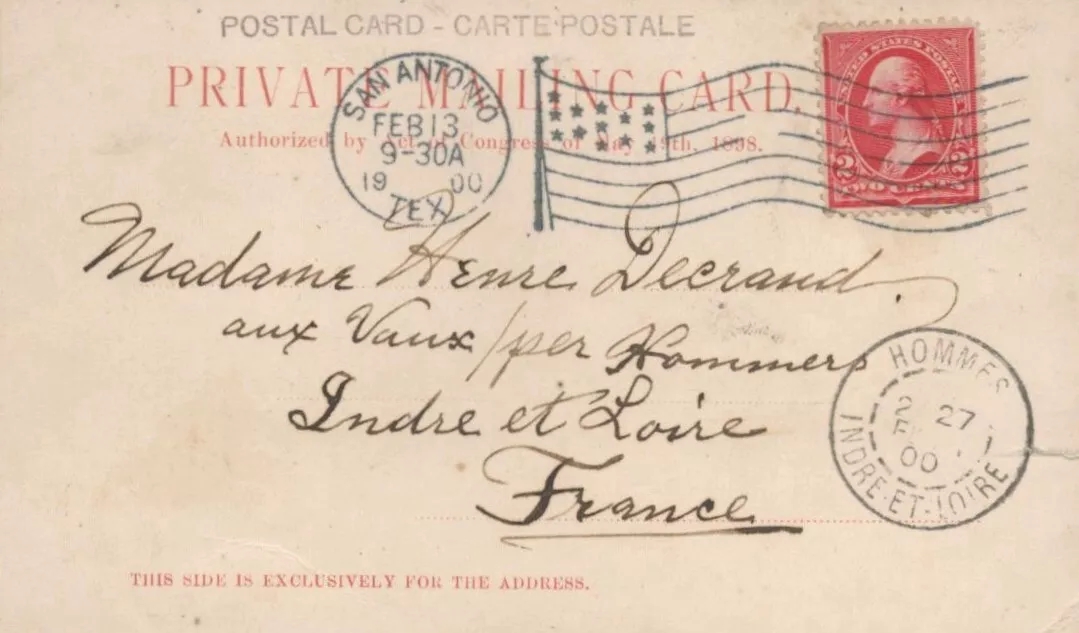 POSTAL CARD - CARTE POSTALE
PRIVATE MAILING CARD.
Authorized by Act of Congress of May 19th, 1898.
SAN ANTONIO
FEB 13
9-30A
19 00
TEX
UNITED STATES POSTAGE
2 2
TWO CENTS
Madame Henre Decraud.
aux Vaux / per Hommers
Indre et Loire
France
HOMMES
2 27
00
INDRE-ET-LOIRE
THIS SIDE IS EXCLUSIVELY FOR THE ADDRESS.